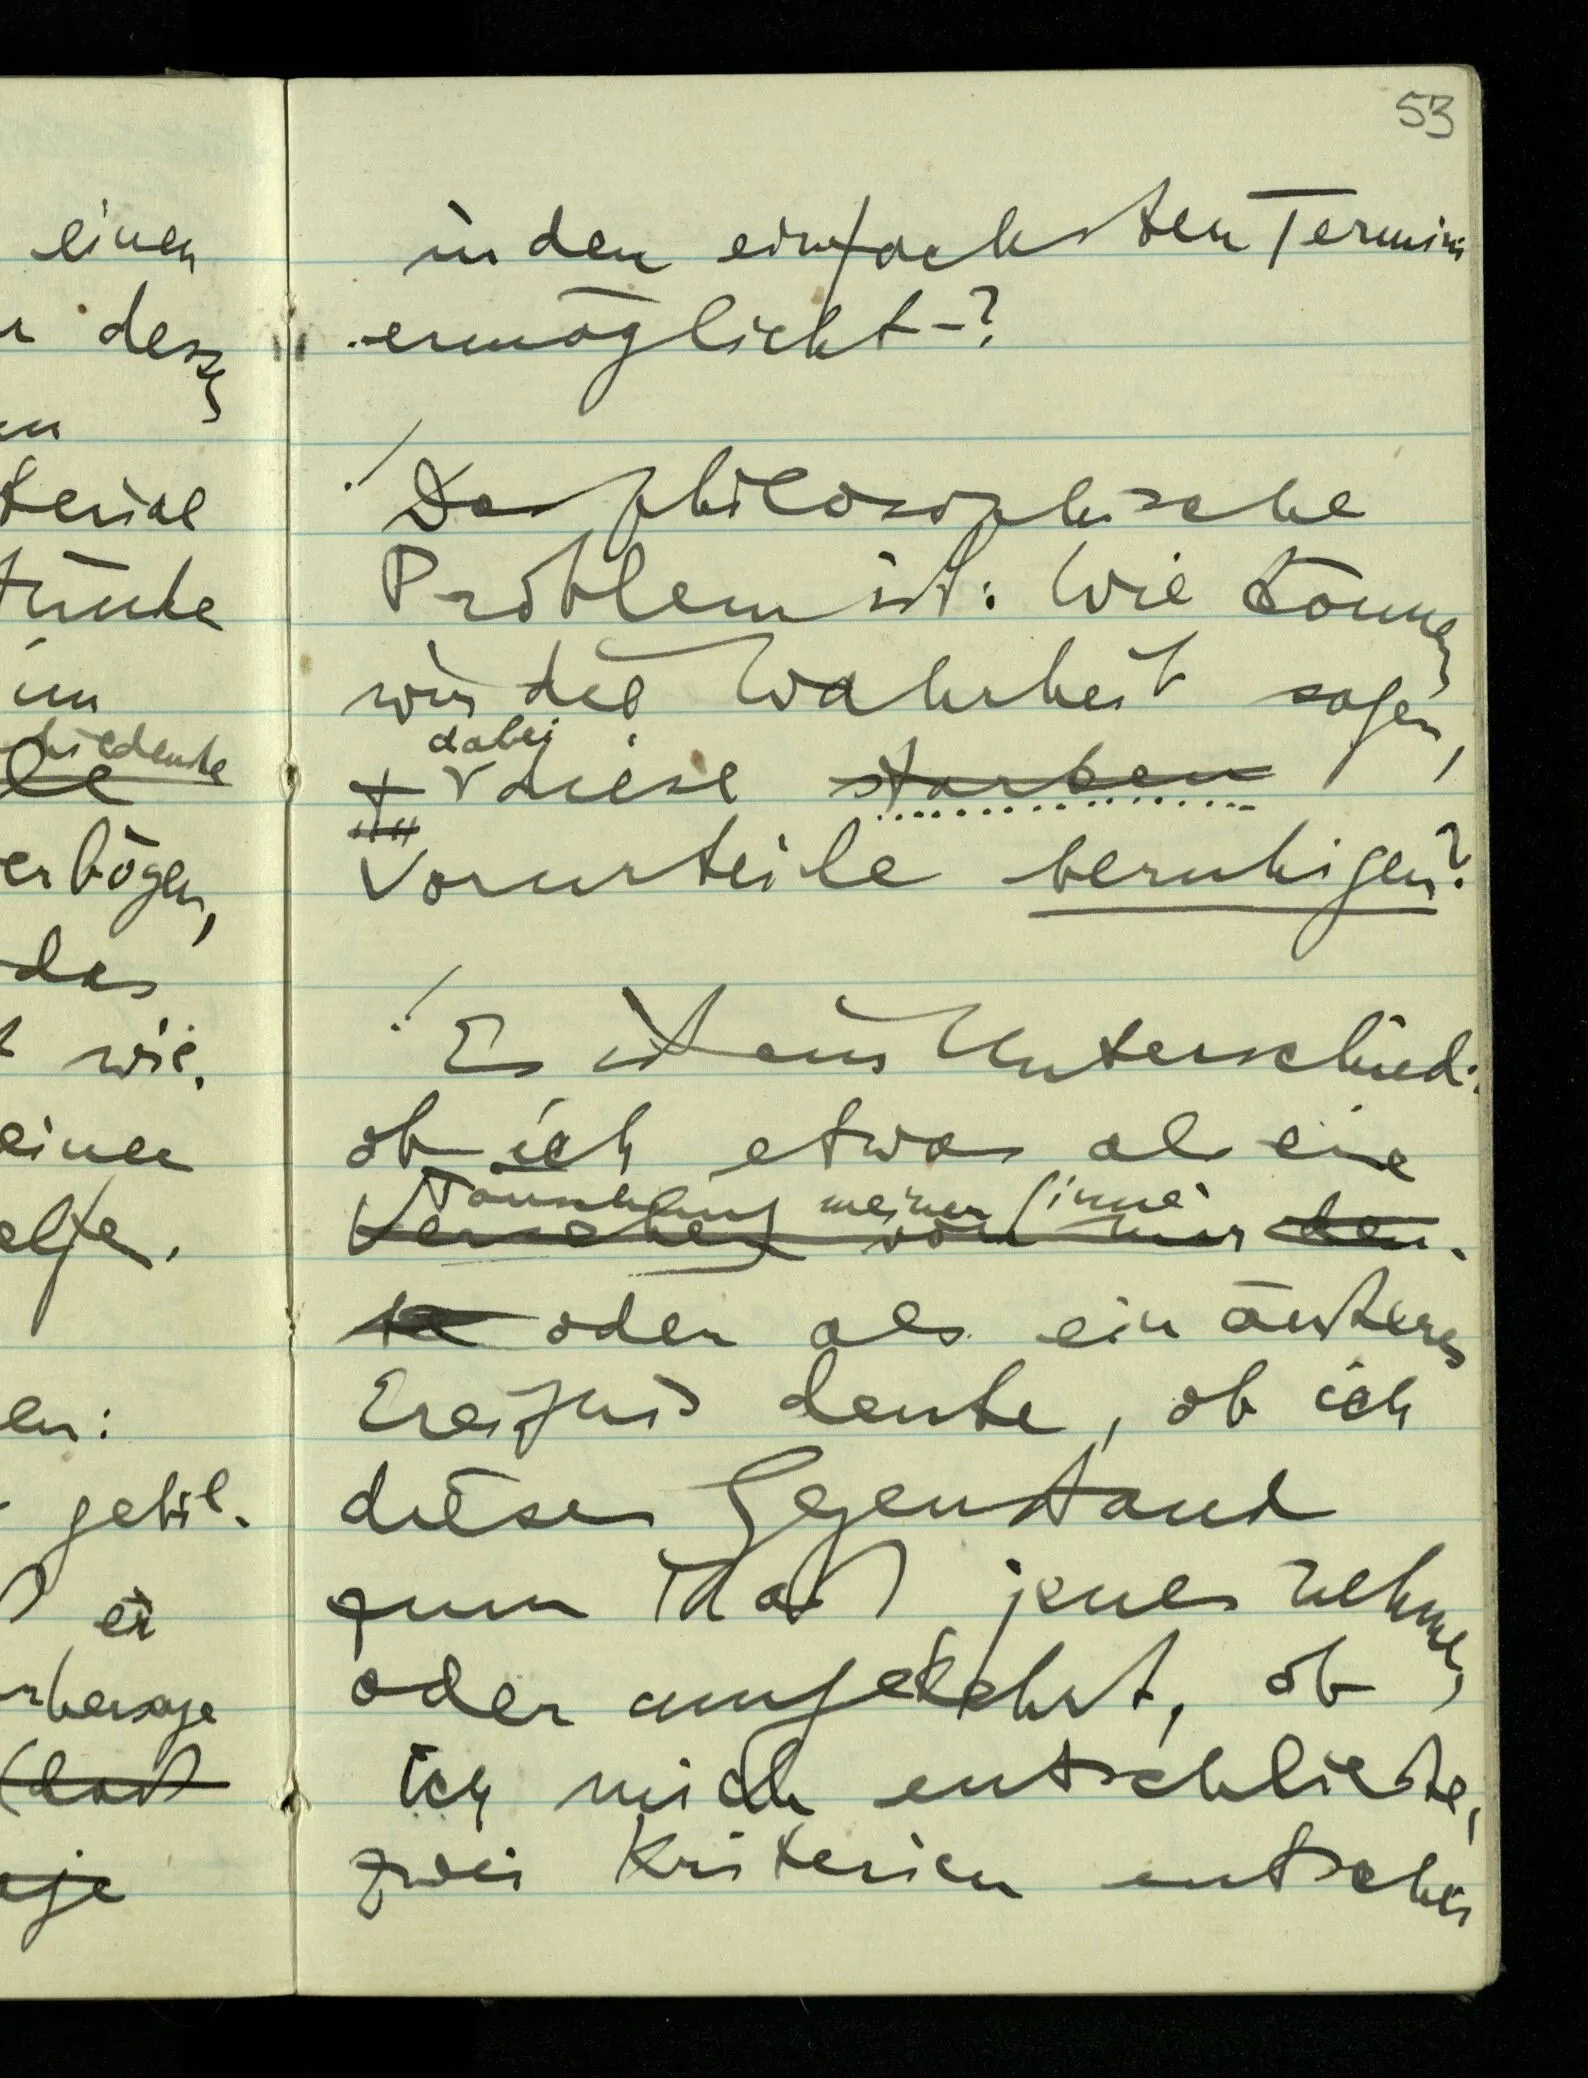 53
einen
dessen
terial
im
erbögen,
das
wie.
einer
en:
gebil-
er
rhersage
(daß
age
in den einfachsten Termini
ermöglicht–?
Das philosophische
Problem ist: Wie können
wir die Wahrheit sagen,
dabei
+ diese starken
Vorurteile beruhigen?
Es ist ein Unterschied:
ob ich etwas als eine
Täuschung meiner Sinne
Versehen von mir den-
ke oder als ein äußeres
Ereignis deute, ob ich
diesen Gegenstand
zum Maß jenes nehme,
oder umgekehrt, ob
ich mich entschließe,
zwei Kriterien entschei